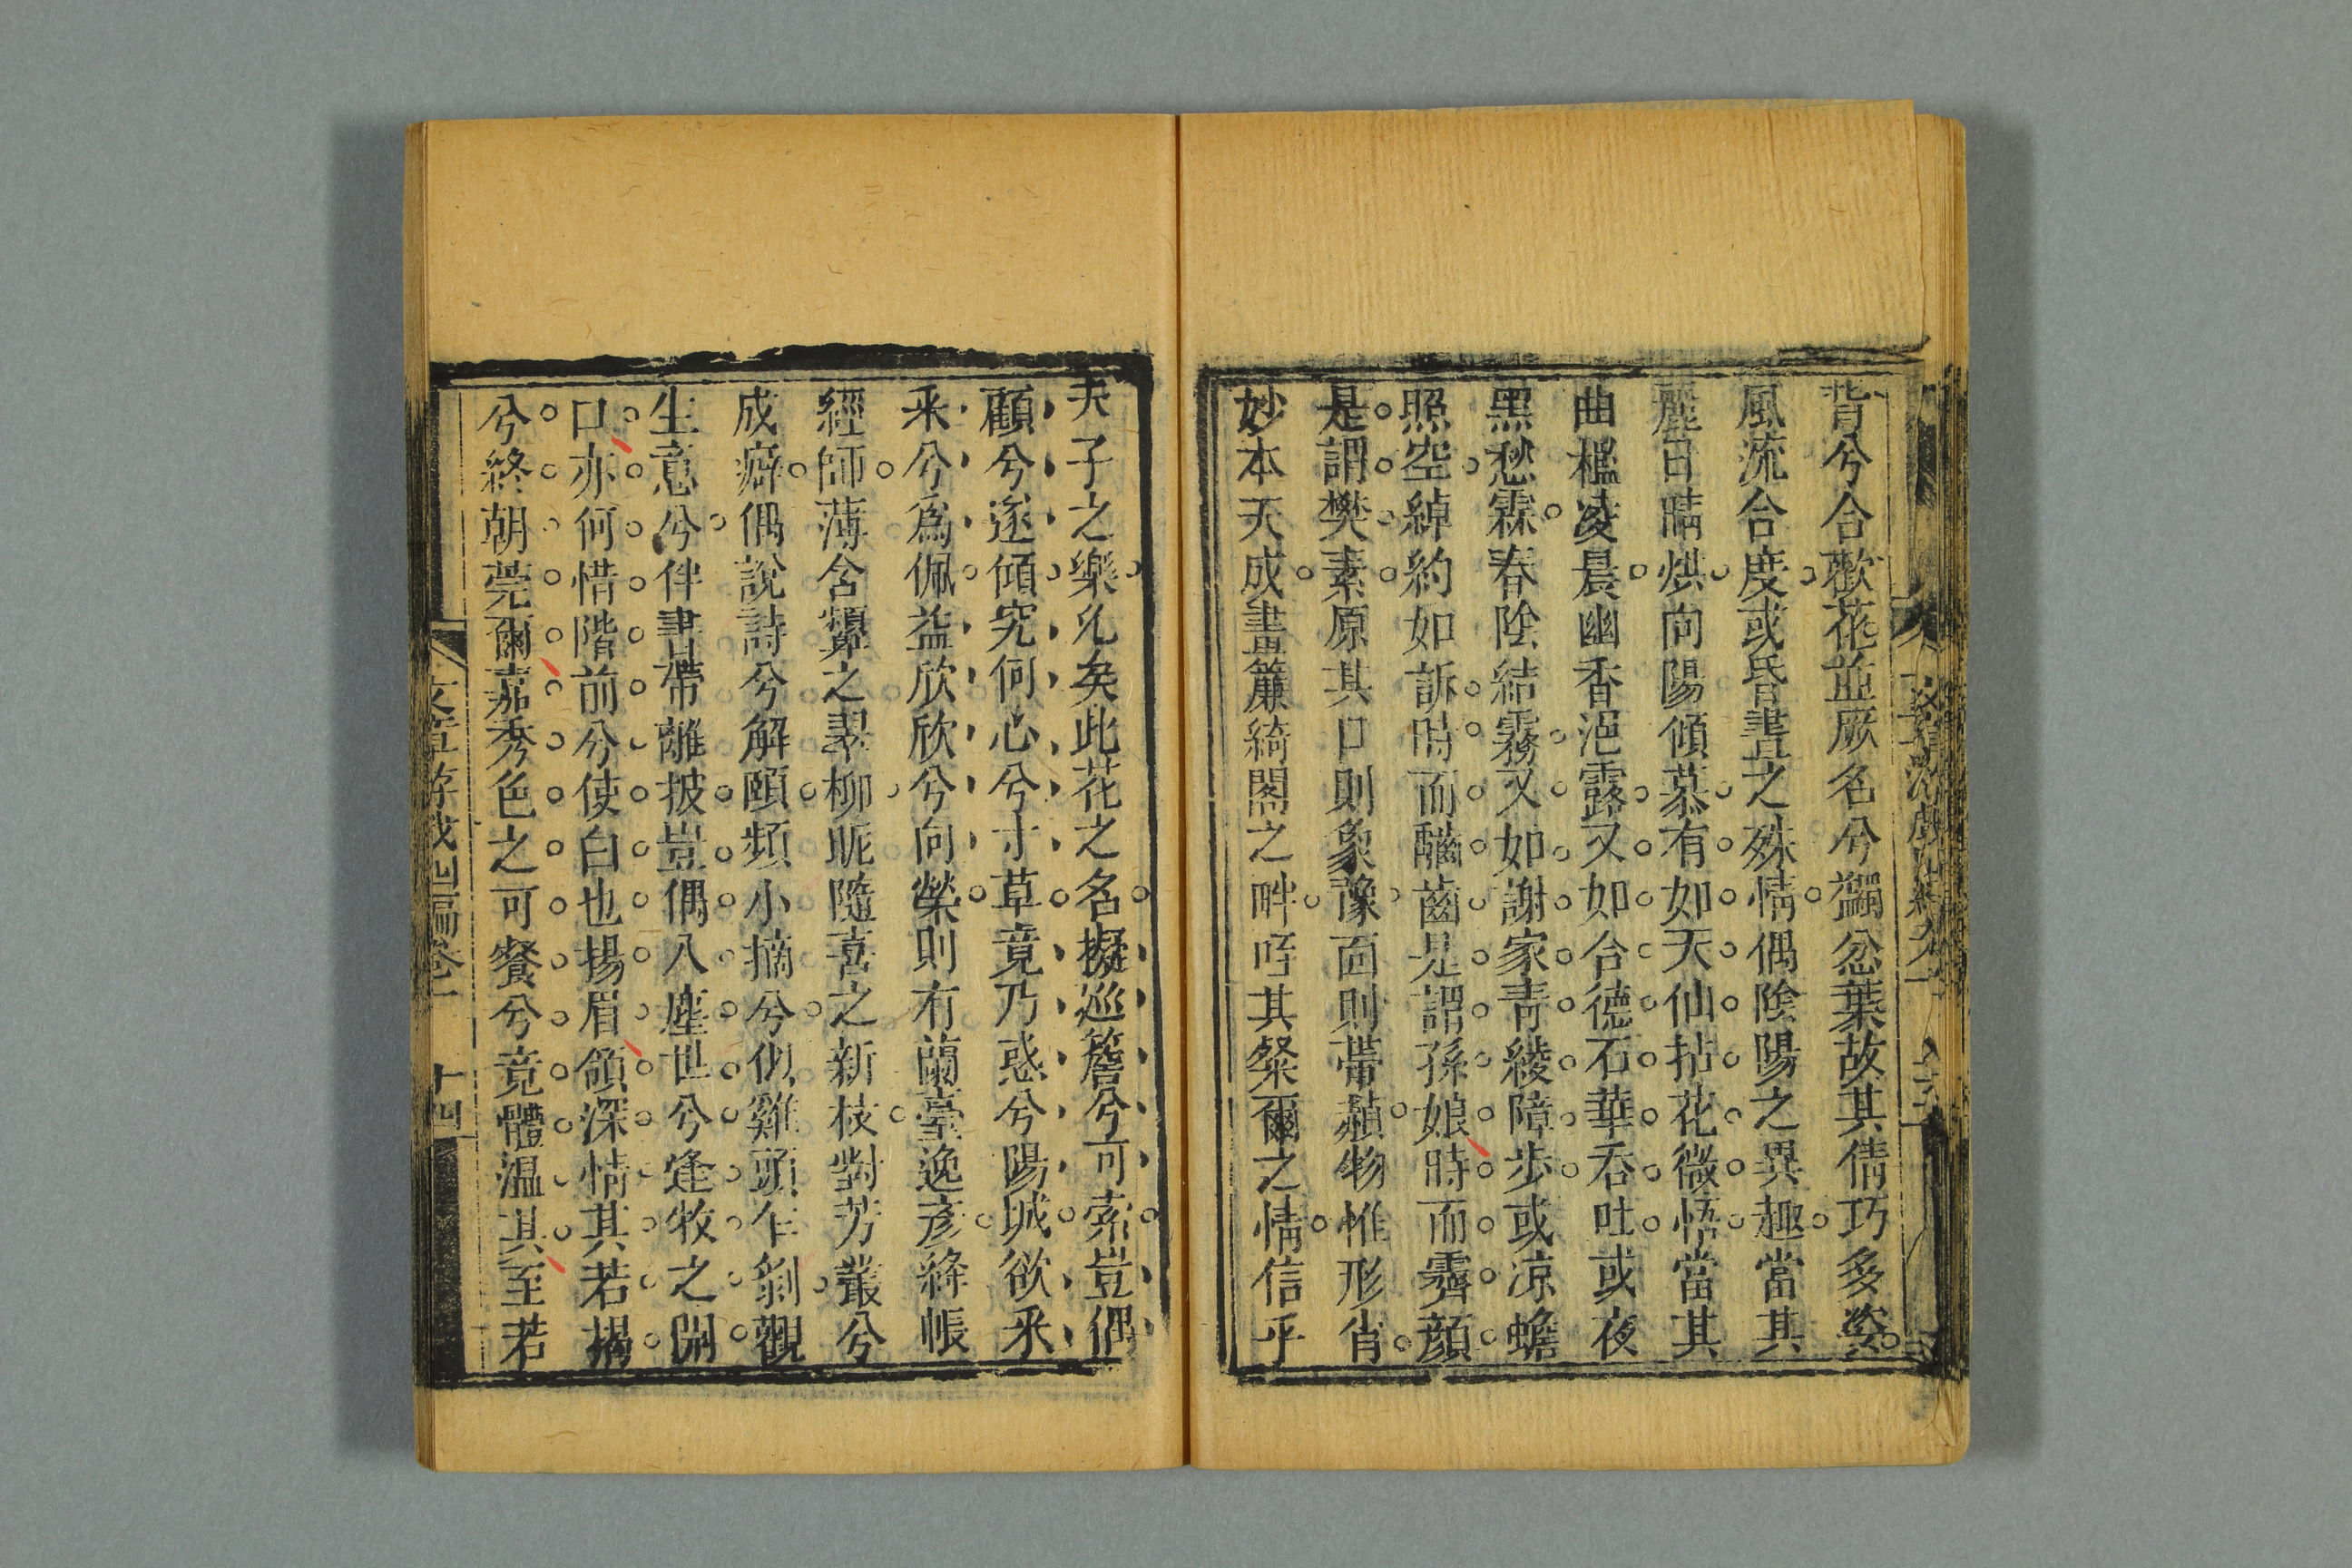 背兮合歡花並厥名兮蠲忿葉故其倩巧多姿
風流合度或昏晝之殊情偶陰陽之異趣當其
麗日晴烘向陽傾慕有如天仙拈花微悟當其
曲檻凌晨幽香浥露又如合德石華吞吐或夜
黑愁霖春陰結霧又如謝家青綾障步或凉蟾
照空綽約如訴時而齲齒是謂孫娘時而露顔
是謂樊素原其口則象豫面則帶赬物惟形肖
妙本天成畫簾綺閣之畔咥其粲爾之情信乎
夫子之樂允矣此花之名擬巡簷兮可索豈偶
顧兮遂傾究何心兮寸草竟乃惑兮陽城欲釆
釆兮爲佩益欣欣兮向榮則有蘭臺逸彥絳帳
經師薄含顰之翠柳昵隨喜之新枝對芳叢兮
成癖偶說詩兮解頤頻小摘兮似雞頭乍剝觀
生意兮伴書帶離披豈偶入塵世兮逢牧之開
口亦何惜階前兮使白也揚眉領深情其若揭
兮終朝莞爾嘉秀色之可餐兮竟體温其至若
文章游戲四編卷一 十四